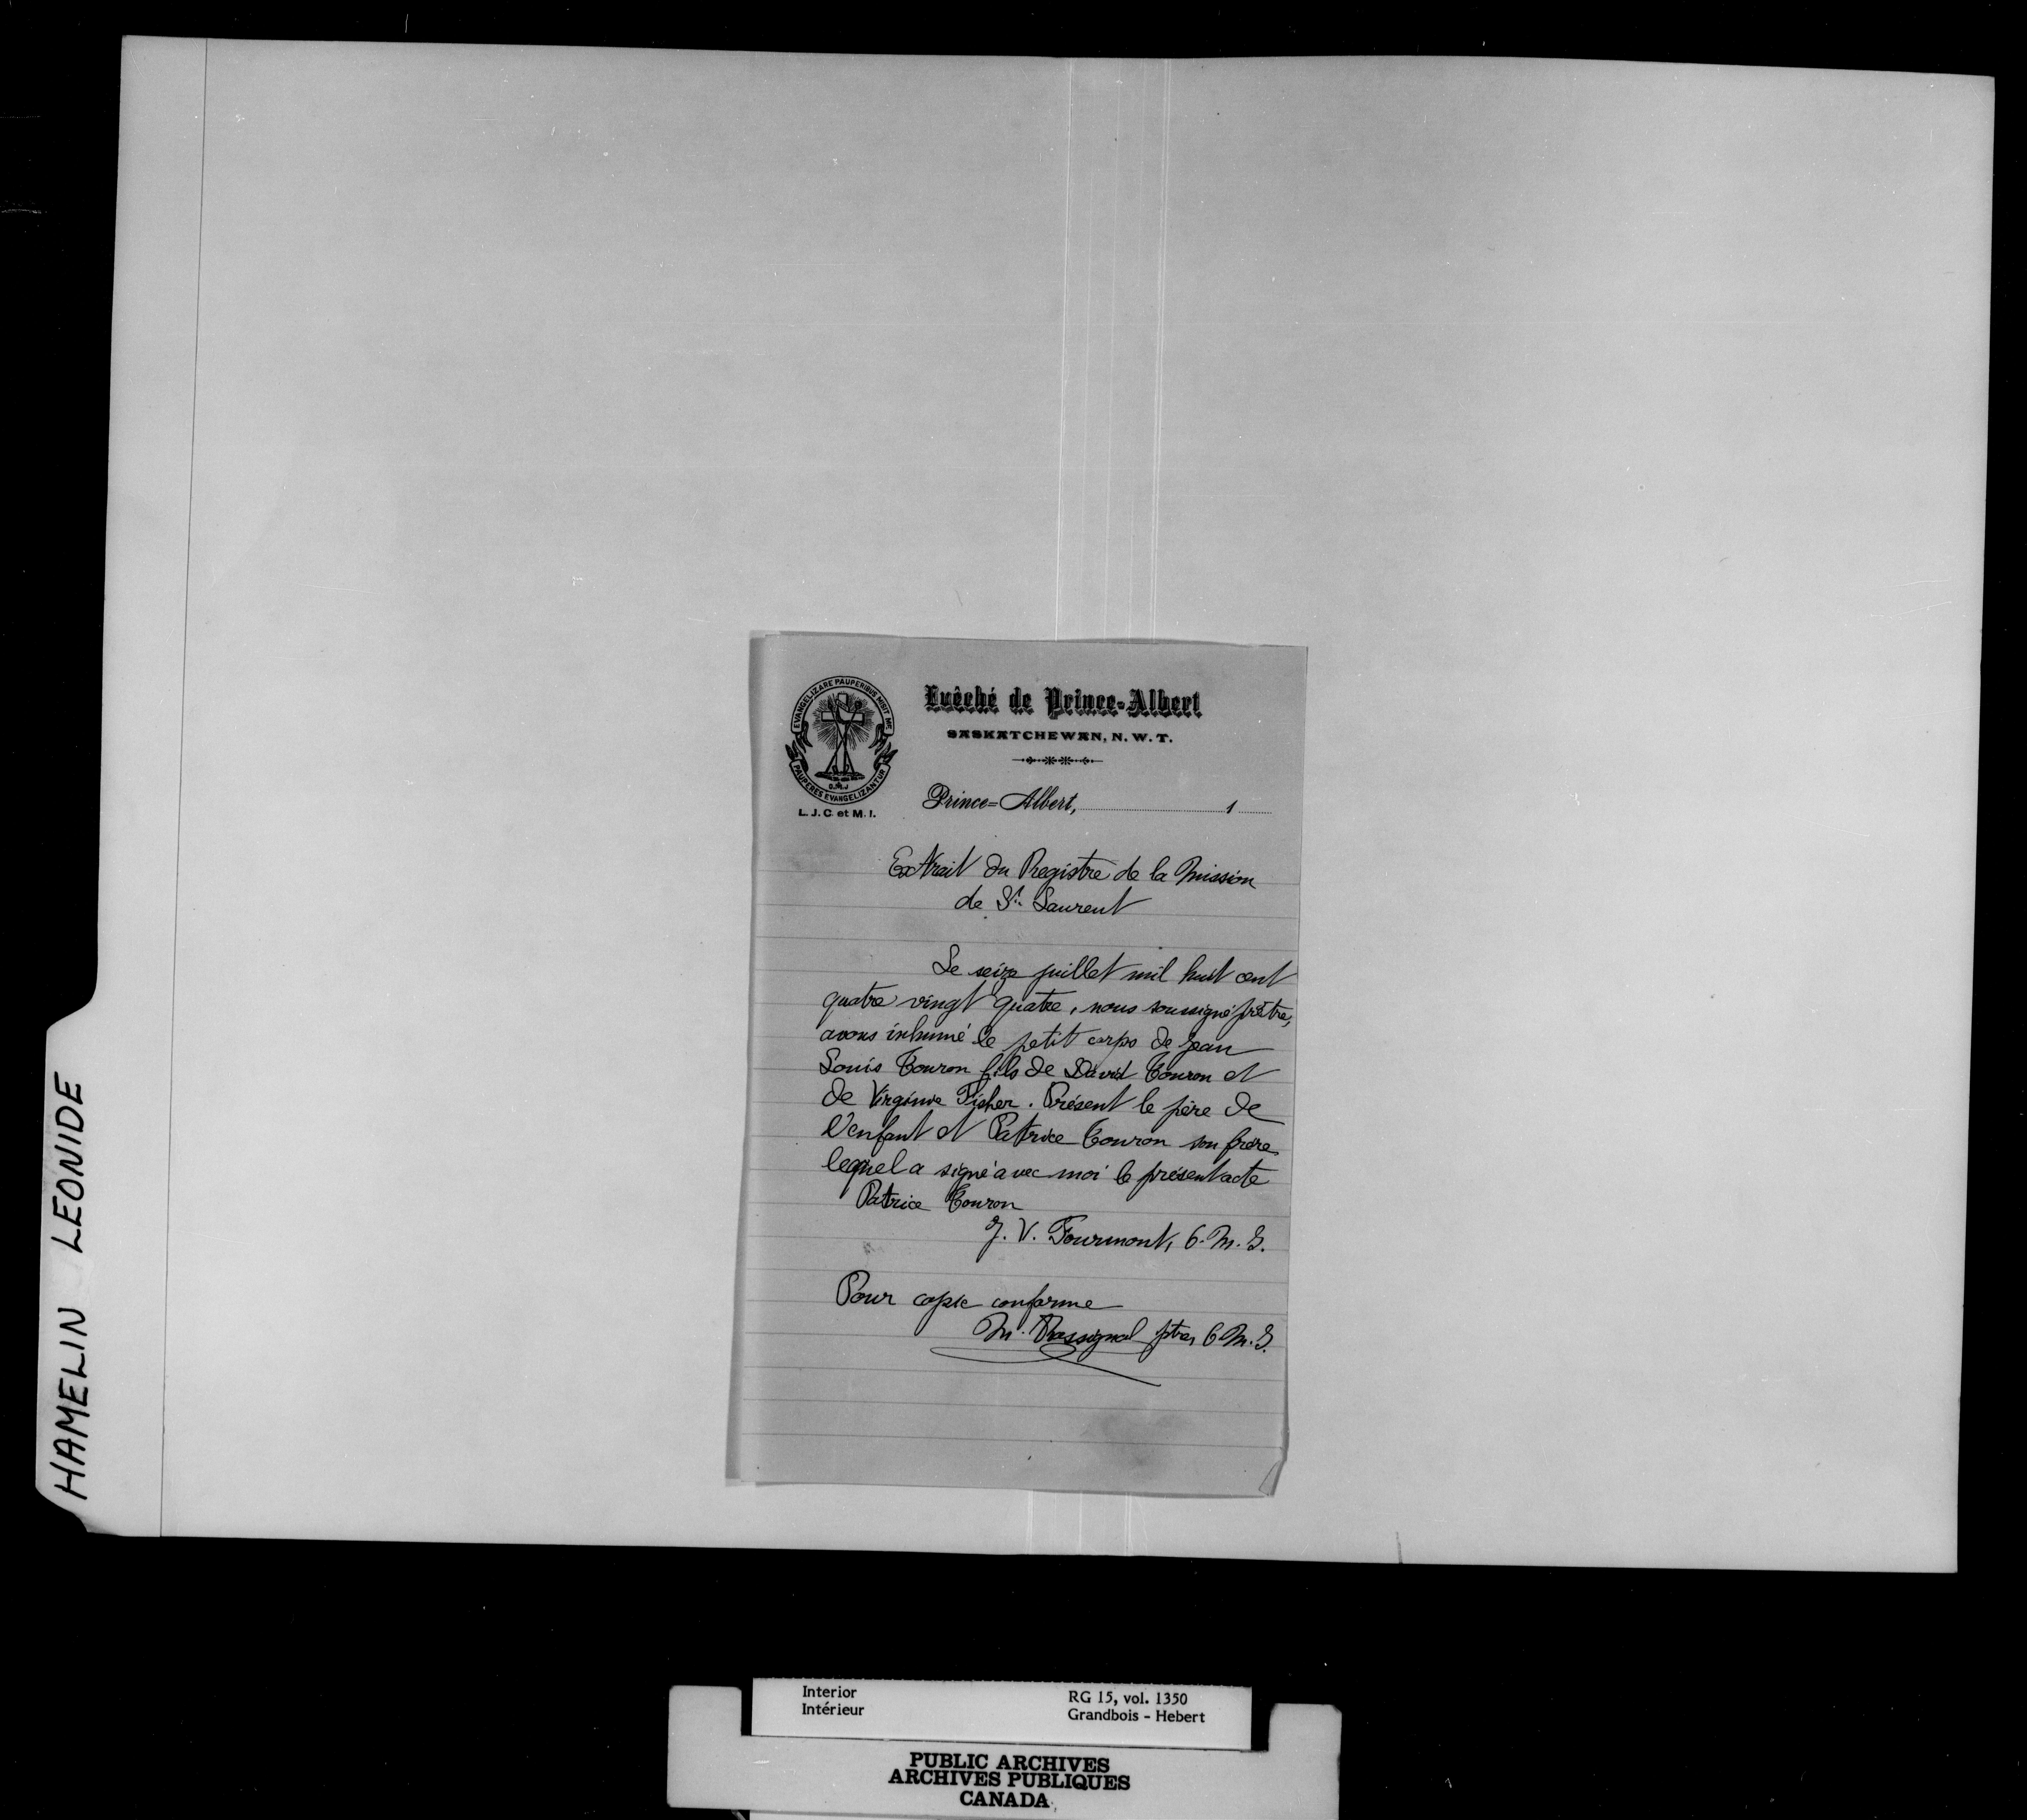 HAMELIN LEONIDE
EVANGELIZARE PAUPERIBUS MISIT ME
PAUPERES EVANGELIZANTUR
L. J. C. et M. I.
Evêché de Prince-Albert
SASKATCHEWAN, N. W. T.
Prince=Albert, 1
Extrait du Registre de la Mission
de St. Laurent
Le seize juillet mil huit cent
quatre vingt quatre, nous soussigné prêtre,
avons inhumé le petit corps de Jean
Louis Touron fils de David Touron et
de Virginie Fisher. Présent le père de
l'enfant et Patrice Touron son frère
lequel a signé avec moi le présent acte
Patrice Touron
J. V. Fourmont, O. M. I.
Pour copie conforme
M. Rossignol ptre, O M. I.
Interior
Intérieur
RG 15, vol. 1350
Grandbois - Hebert
PUBLIC ARCHIVES
ARCHIVES PUBLIQUES
CANADA